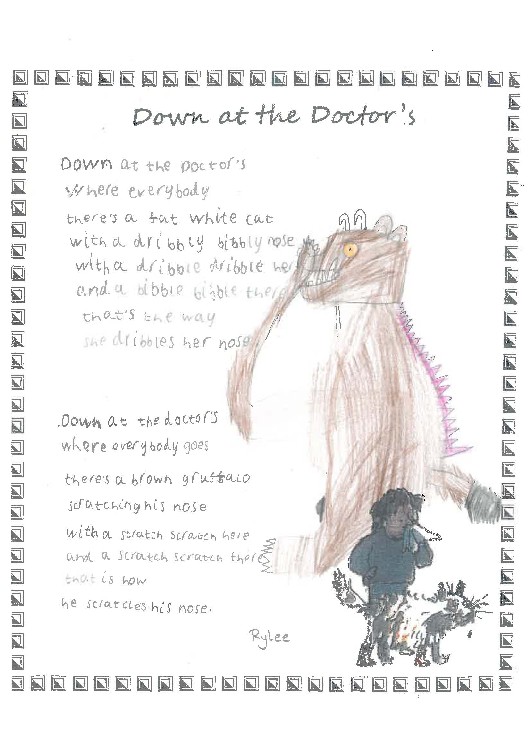 Down at the Doctor's
Down at the Doctor's
Where everybody
there's a fat white cat
with a dribbly bibbly nose
with a dribble dribble here
and a bibble bibble there
that's the way
she dribbles her nose.
Down at the doctor's
where everybody goes
there's a brown gruffalo
scratching his nose
with a scratch scratch here
and a scratch scratch there
that is how
he scratches his nose.
Rylee